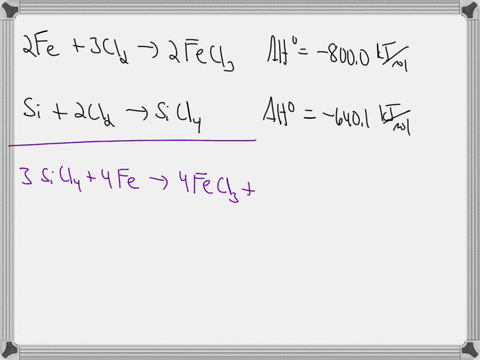 2Fe + 3Cl₂ → 2FeCl₃ ΔH° = -800.0 kJ/mol
Si + 2Cl₂ → SiCl₄ ΔH° = -640.1 kJ/mol
3 SiCl₄ + 4Fe → 4FeCl₃ +